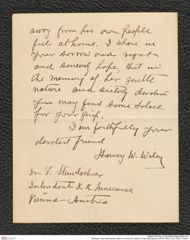 away from his own people
feel at home. I share in
your sorrow and regret
and sincerely hope, that in
the memory of her gentle
nature and sisterly devotion
you may find some solace
for your grief.
I am faithfully your
devoted friend
Harvey W. Wiley
Dr. F. Steindachner
Intendant K. K. Museums
Vienna - Austria